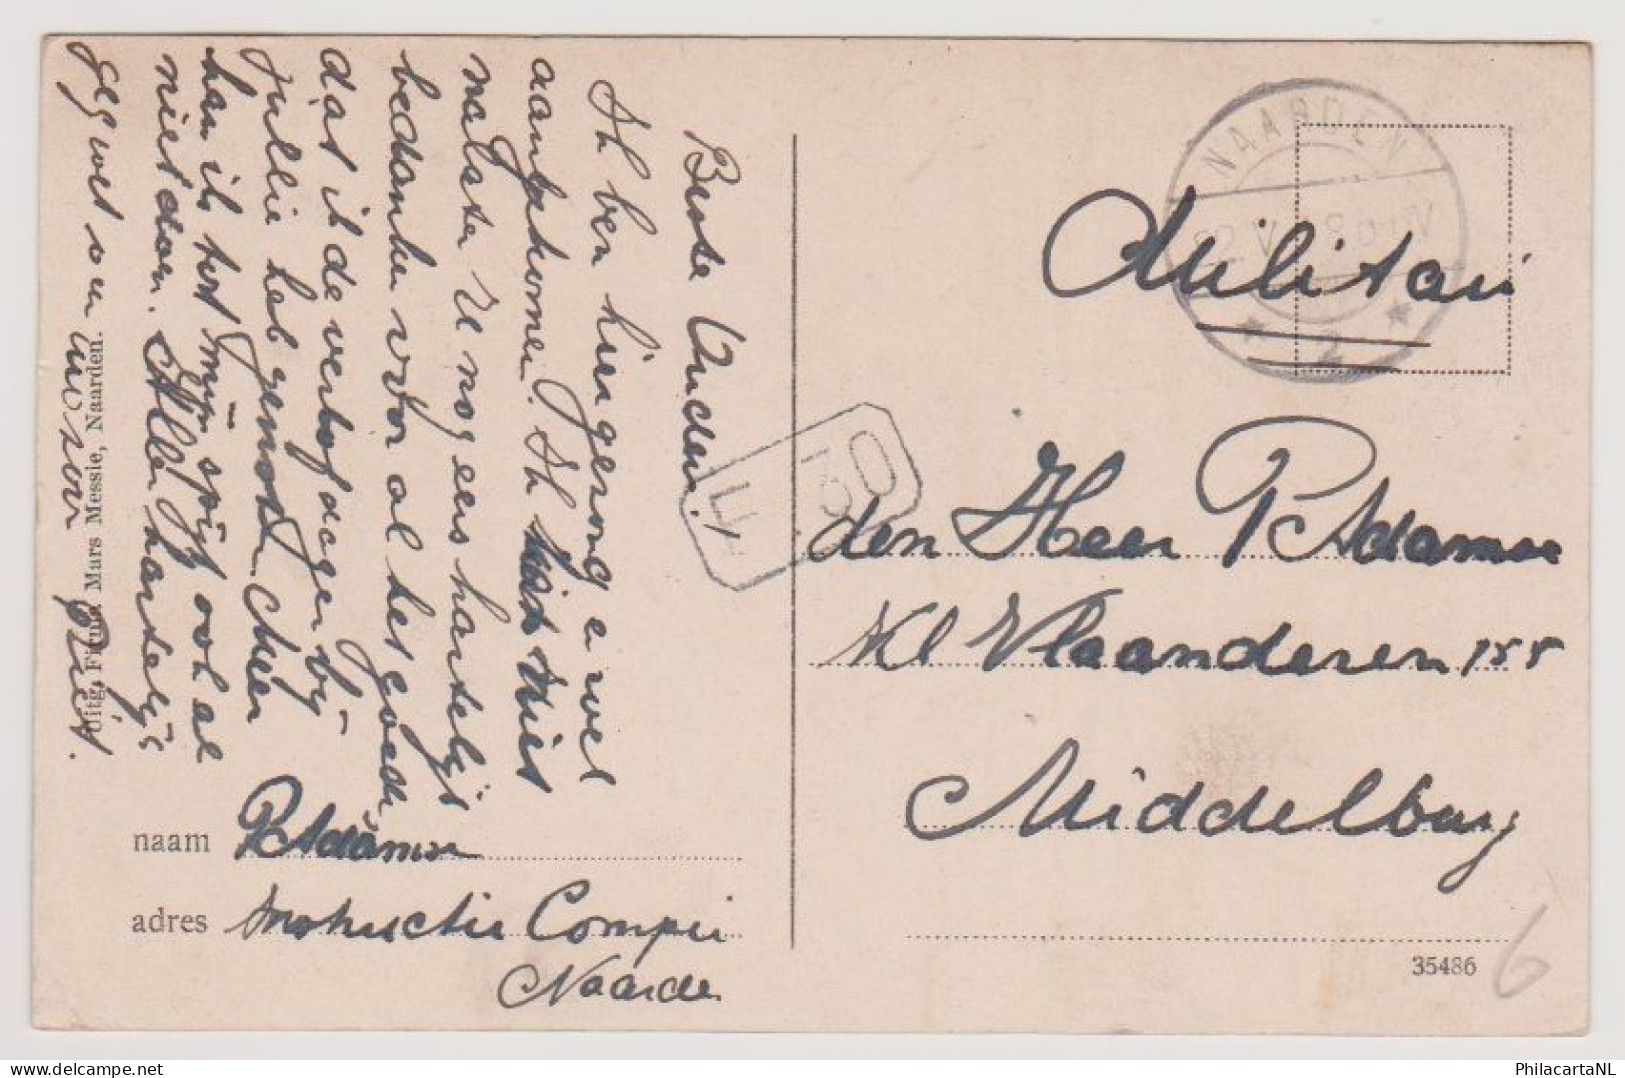 Beste Ouders!
Ik ben hier gezond en wel
aangekomen. Ik niet
nalaten U nog eens hartelijk
bedanken voor al het goede
dat ik de verlofdagen bij
jullie heb genoten. Meer
kan ik tot mijn spijt ook al
niet doen. Allen hartelijk
gegroet van uw zoon
Piet.
naam P Adamse
adres Instructie Compie
Naarden
Uitg. Firma Mars Messie, Naarden.
NAARDEN
2
30
Militair
den Heer P Adamse
Kl Vlaanderen 155
Middelburg
35486
6
PhilacartaNL